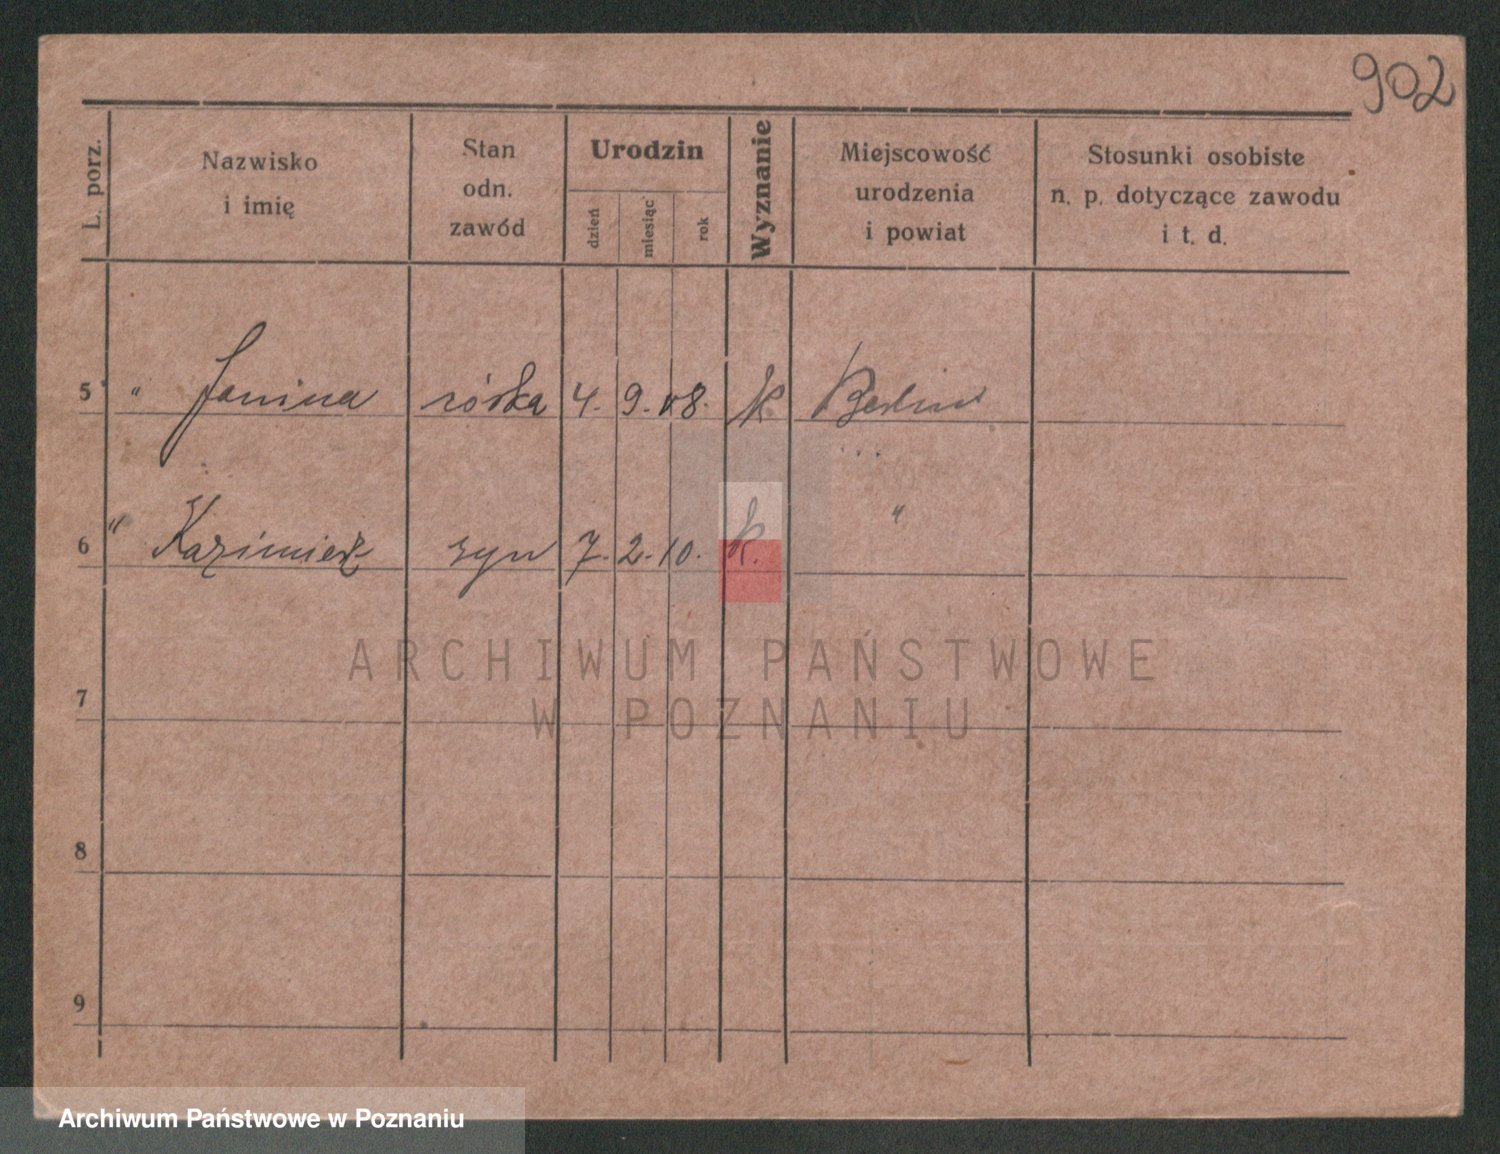 902
L. porz.
Nazwisko
i imię
Stan
odn.
zawód
Urodzin
dzień
miesiąc
rok
Wyznanie
Miejscowość
urodzenia
i powiat
Stosunki osobiste
n. p. dotyczące zawodu
i t. d.
5 " Janina córka 4. 9. 08. k Berlin
6 " Kazimierz syn 7. 2. 10. k. "
ARCHIWUM PAŃSTWOWE
W POZNANIU
7
8
9
Archiwum Państwowe w Poznaniu